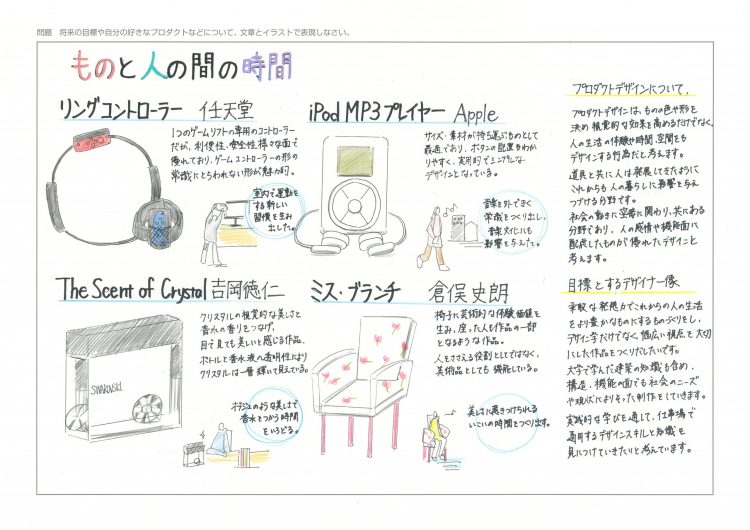 問題　将来の目標や自分の好きなプロダクトなどについて、文章とイラストで表現しなさい。
ものと人の間の時間
リングコントローラー　任天堂
1つのゲームソフトの専用のコントローラー
だが、利便性、安全性、様々な面で
優れており、ゲームコントローラーの形の
常識にとらわれない形が魅力的。
室内で運動を
する新しい
習慣を生み
出した。
iPod MP3プレイヤー　Apple
サイズ・素材が持ち運ぶものとして
最適であり、ボタンの配置もわか
りやすく、実用的でシンプルな
デザインとなっている。
音楽を外できく
常識をつくり出し、
音楽文化にも
影響を与えた。
The Scent of Crystal 吉岡徳仁
クリスタルの視覚的な美しさと
香水の香りをつなげ、
目で見ても美しいと感じる作品。
ボトルと香水液の透明性により
クリスタルは一層輝いて見えている。
SWAROVSKI
オブジェのような美しさで
香水をつかう時間
をいろどる。
ミス・ブランチ　倉俣史朗
椅子に芸術的な体験価値を
生み、座った人も作品の一部
となるような作品。
人をささえる役割としてではなく、
美術品としても機能している。
美しさに惹きつけられる
いこいの時間をつくり出す。
プロダクトデザインについて、
プロダクトデザインは、ものの色や形を
決め視覚的な効果を高めるだけでなく、
人の生活の体験や時間、空間をも
デザインする行為だと考えます。
道具と共に人は発展してきたように
これからも人の暮らしに影響を与え
つづける分野です。
社会の動きに密接に関わり、共にある
分野であり、人の感情や機能面に
配慮したものが優れたデザインと
考えます。
目標とするデザイナー像
柔軟な発想力でこれからの人の生活
をより豊かなものにするものづくりをし、
デザイン学だけでなく、幅広い視点を大切
にした作品をつくりだしたいです。
大学で学んだ建築の知識も含め、
構造、機能の面でも社会のニーズ
や現状によりそった制作をしていきます。
実践的な学びを通して、仕事場で
通用するデザインスキルと知識を
見につけていきたいと考えています。